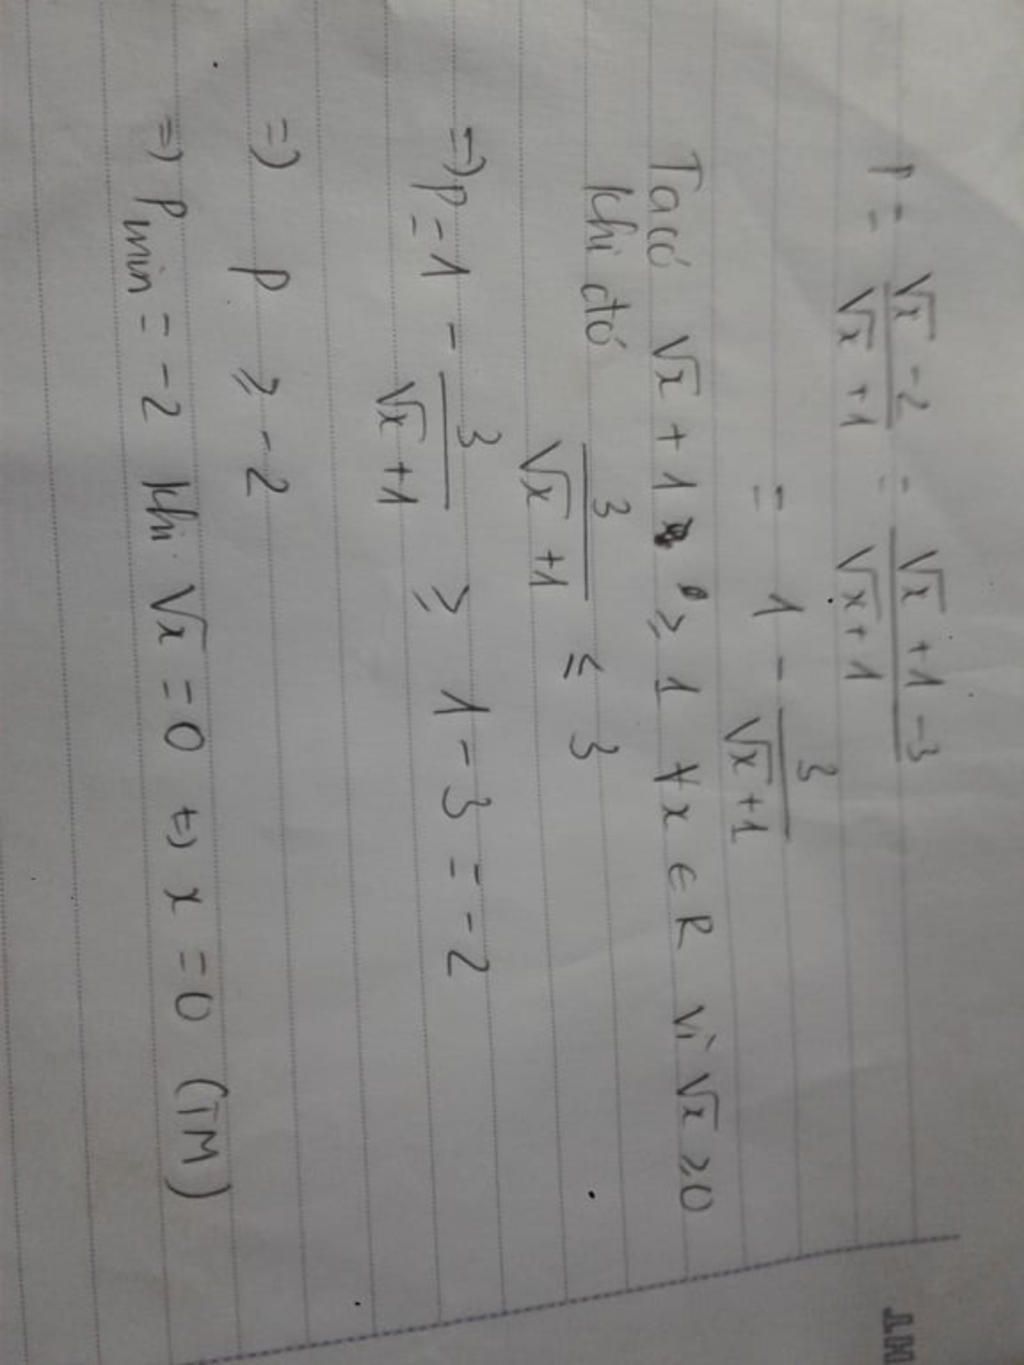 P = (√x - 2)/(√x + 1) = (√x + 1 - 3)/(√x + 1)
= 1 - 3/(√x + 1)
Ta có √x + 1 ≥ 1 ∀x ∈ R vì √x ≥ 0
khi đó 3/(√x + 1) ≤ 3
=> P = 1 - 3/(√x + 1) ≥ 1 - 3 = -2
=> P ≥ -2
=> Pmin = -2 khi √x = 0 <=> x = 0 (TM)